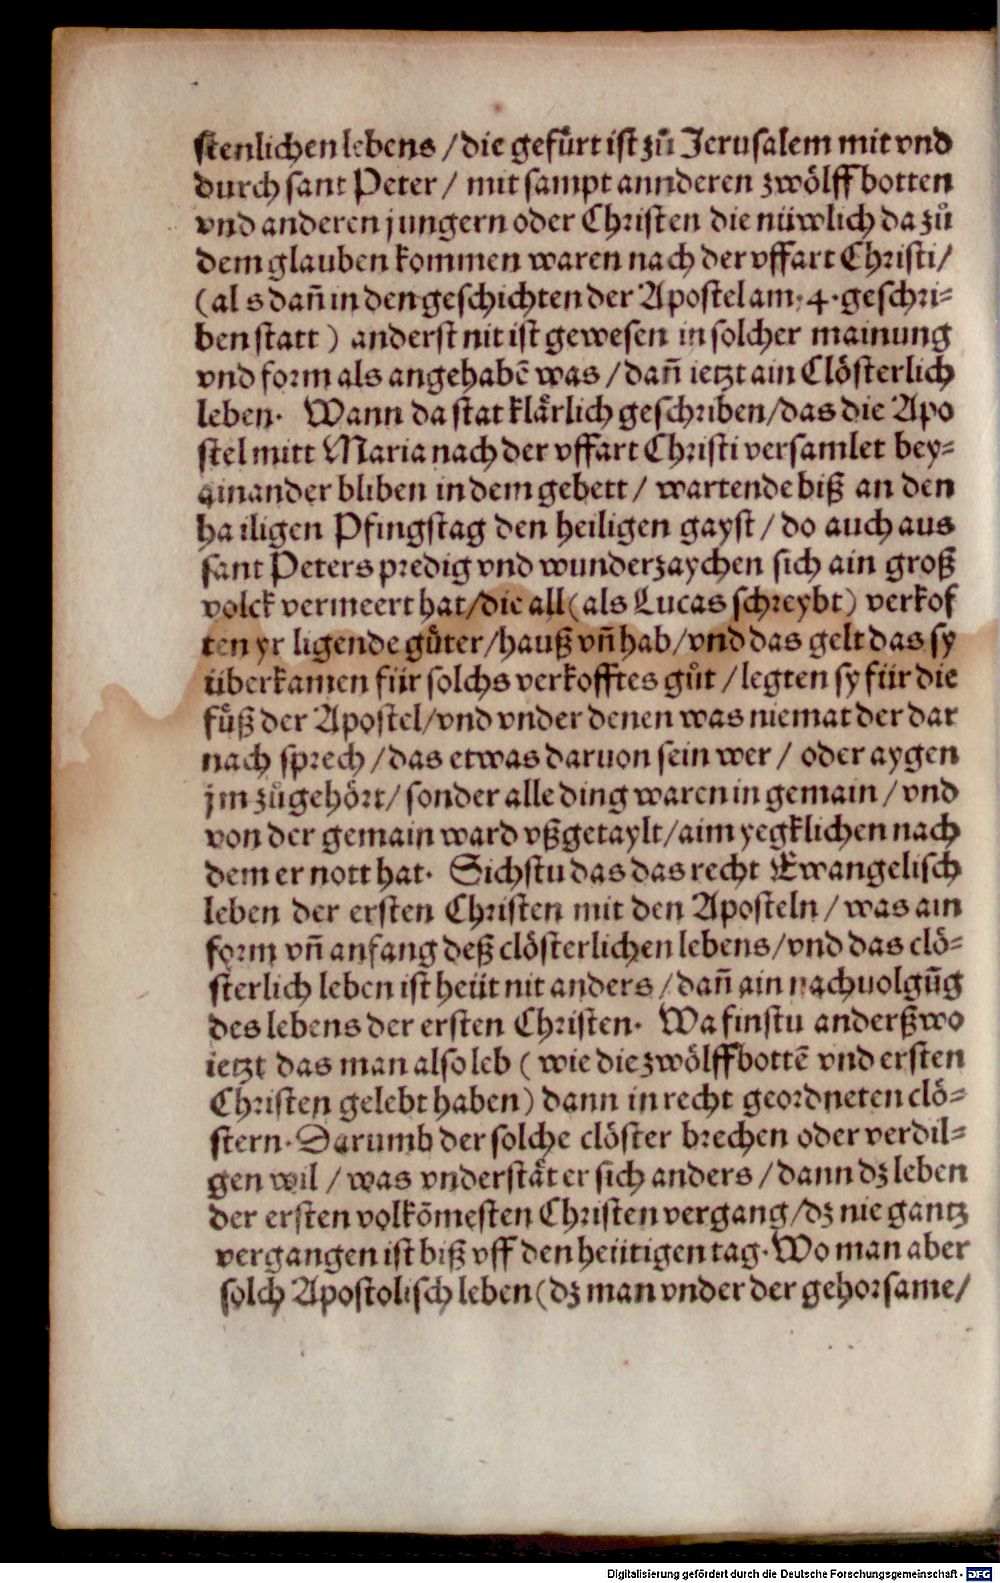 stenlichen lebens / die gefůrt ist zů Jerusalem mit vnd
durch sant Peter / mit sampt annderen zwölff botten
vnd anderen jungern oder Christen die nüwlich da zů
dem glauben kommen waren nach der vffart Christi /
(als dañ in den geschichten der Apostel am. 4. geschri⸗
ben statt) anderst nit ist gewesen in solcher mainung
vnd form als angehabē was / dañ ietzt ain Clösterlich
leben. Wann da stat klärlich geschriben / das die Apo
stel mitt Maria nach der vffart Christi versamlet bey⸗
ainander bliben in dem gebett / wartende biß an den
hailigen Pfingstag den heiligen gayst / do auch aus
sant Peters predig vnd wunderzaychen sich ain groß
volck vermeert hat / die all (als Lucas schreybt) verkof
ten yr ligende gůter / hauß vñ hab / vnd das gelt das sy
überkamen für solchs verkofftes gůt / legten sy für die
fůß der Apostel / vnd vnder denen was niemat der dar
nach sprech / das etwas daruon sein wer / oder aygen
jm zůgehört / sonder alle ding waren in gemain / vnd
von der gemain ward vßgetaylt / aim yegklichen nach
dem er nott hat. Sichstu das das recht Ewangelisch
leben der ersten Christen mit den Aposteln / was ain
form vñ anfang deß clösterlichen lebens / vnd das clö⸗
sterlich leben ist heüt nit anders / dañ ain nachuolgũg
des lebens der ersten Christen. Wa finstu anderßwo
ietzt das man also leb (wie die zwölffbottē vnd ersten
Christen gelebt haben) dann in recht geordneten clö⸗
stern. Darumb der solche clöster brechen oder verdil⸗
gen wil / was vnderstät er sich anders / dann dz leben
der ersten volkōmesten Christen vergang / dz nie gantz
vergangen ist biß vff den heütigen tag. Wo man aber
solch Apostolisch leben (dz man vnder der gehorsame /
Digitalisierung gefördert durch die Deutsche Forschungsgemeinschaft - DFG